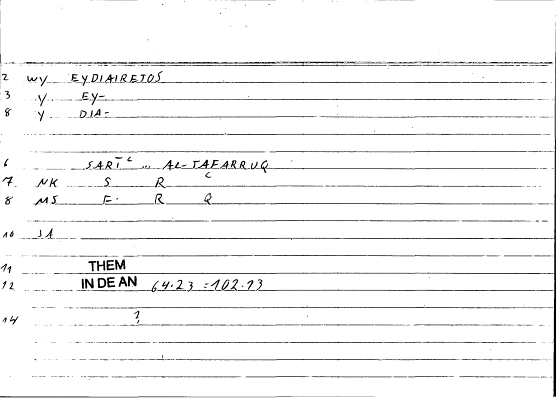 2 wy EYDIAIRETOS
3 y EY-
8 y DIA-
6 SARĪʿ ... AL-TAFARRUQ
7 NK S R ʿ
8 MS F R Q
10 JA
11 THEM
12 IN DE AN 64.23 = 102.13
14 ?